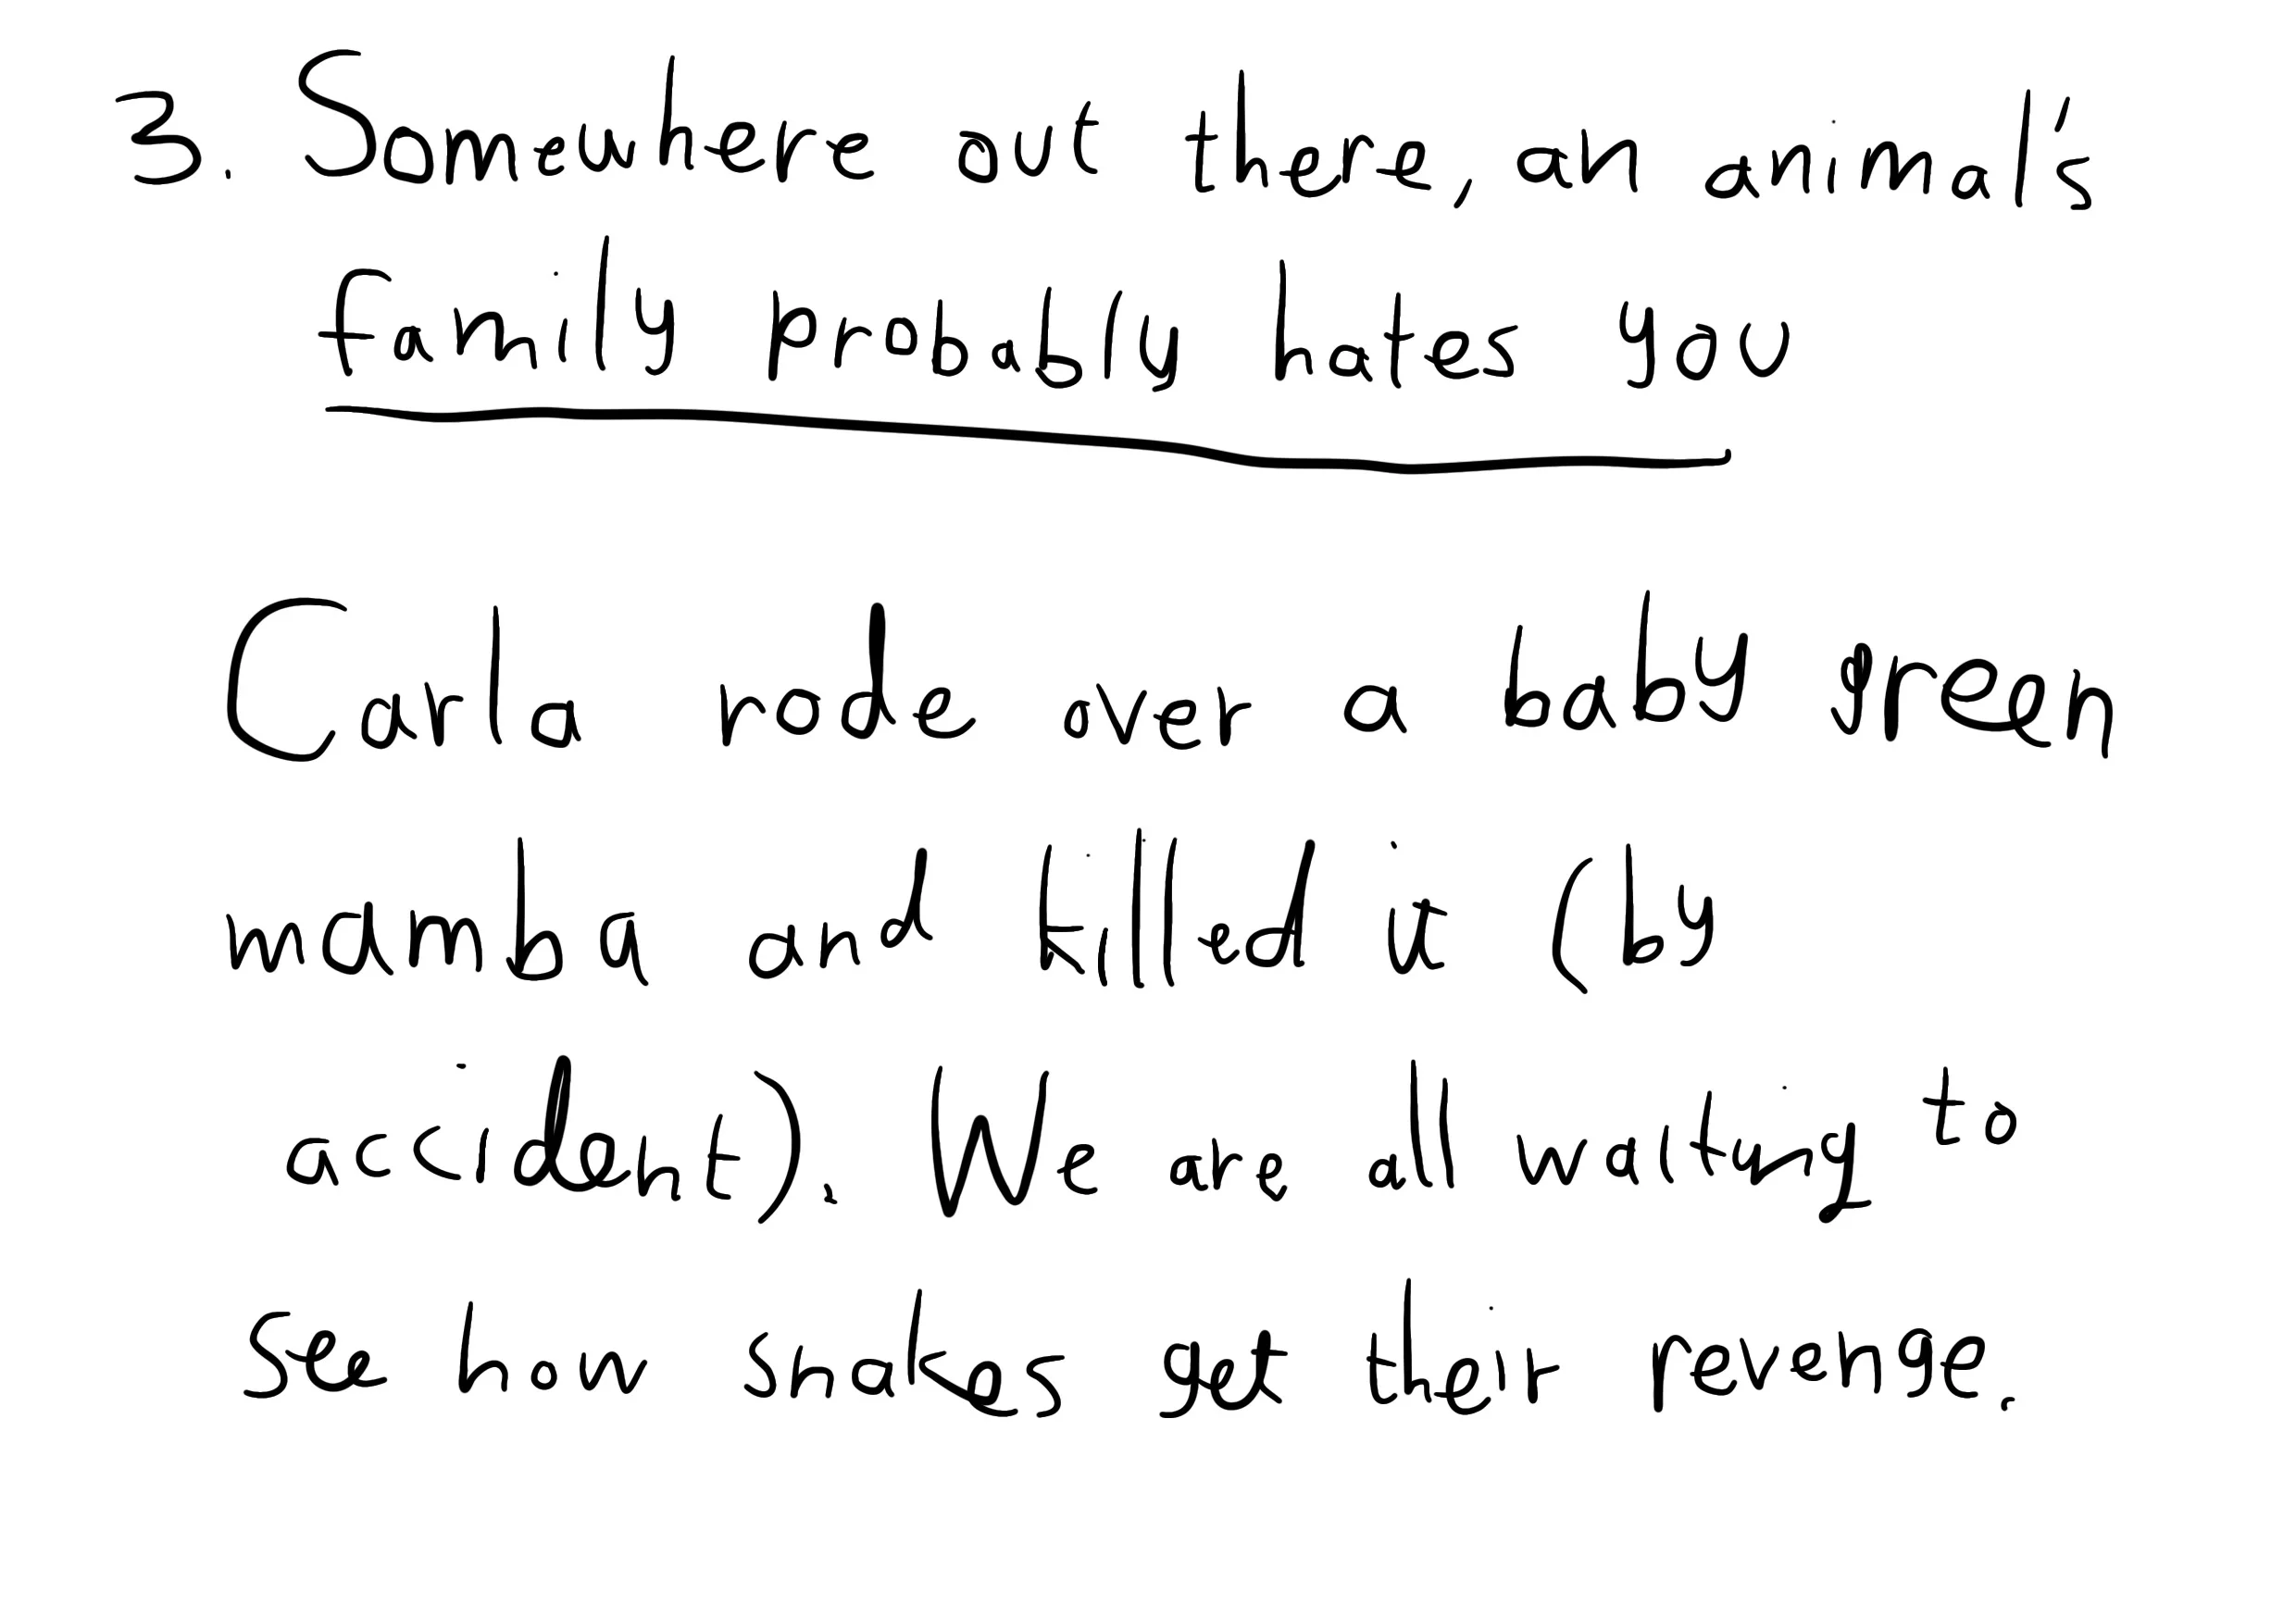 3. Somewhere out there, an animal's
family probably hates you
Carla rode over a baby green
mamba and killed it (by
accident). We are all waiting to
see how snakes get their revenge.